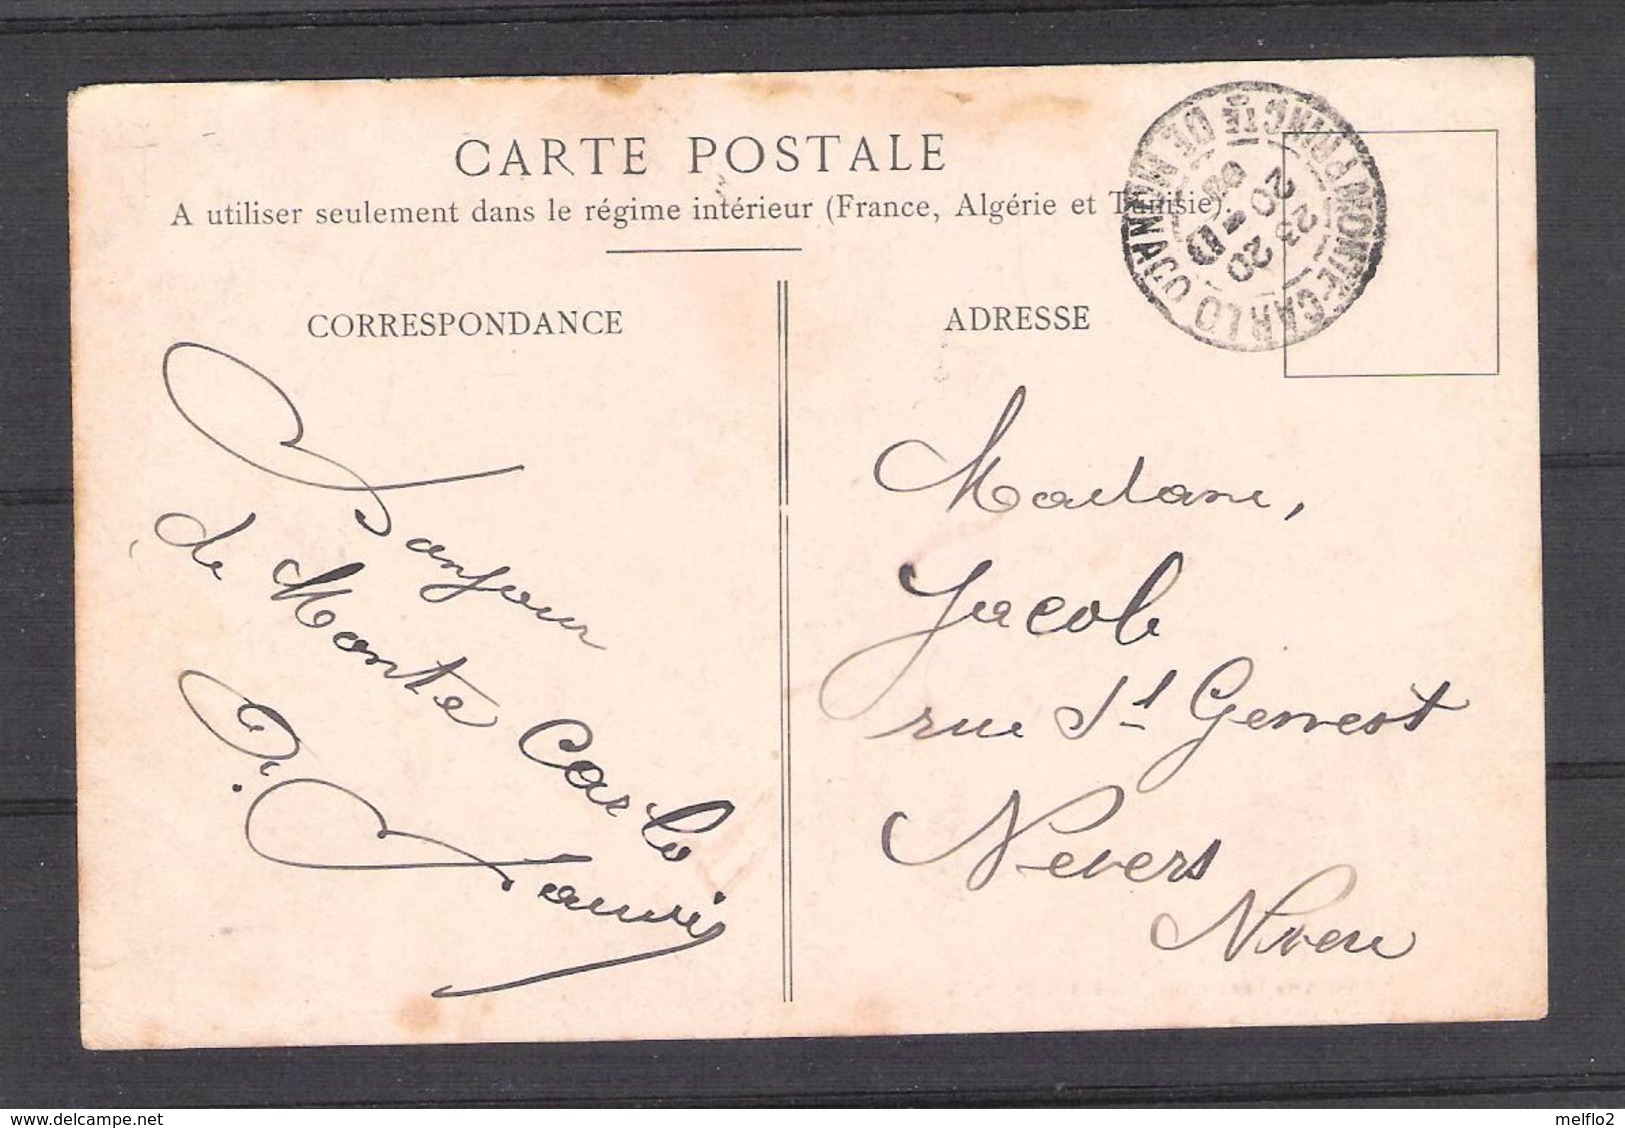 CARTE POSTALE
A utiliser seulement dans le régime intérieur (France, Algérie et Tunisie).
MONTE-CARLO PRINCTÉ DE MONACO
20
23
20
CORRESPONDANCE
Bonjour
de Monte Carlo
ADRESSE
Madame,
Jacob
rue St Genest
Nevers
Nievre
delcampe.net
melflo2